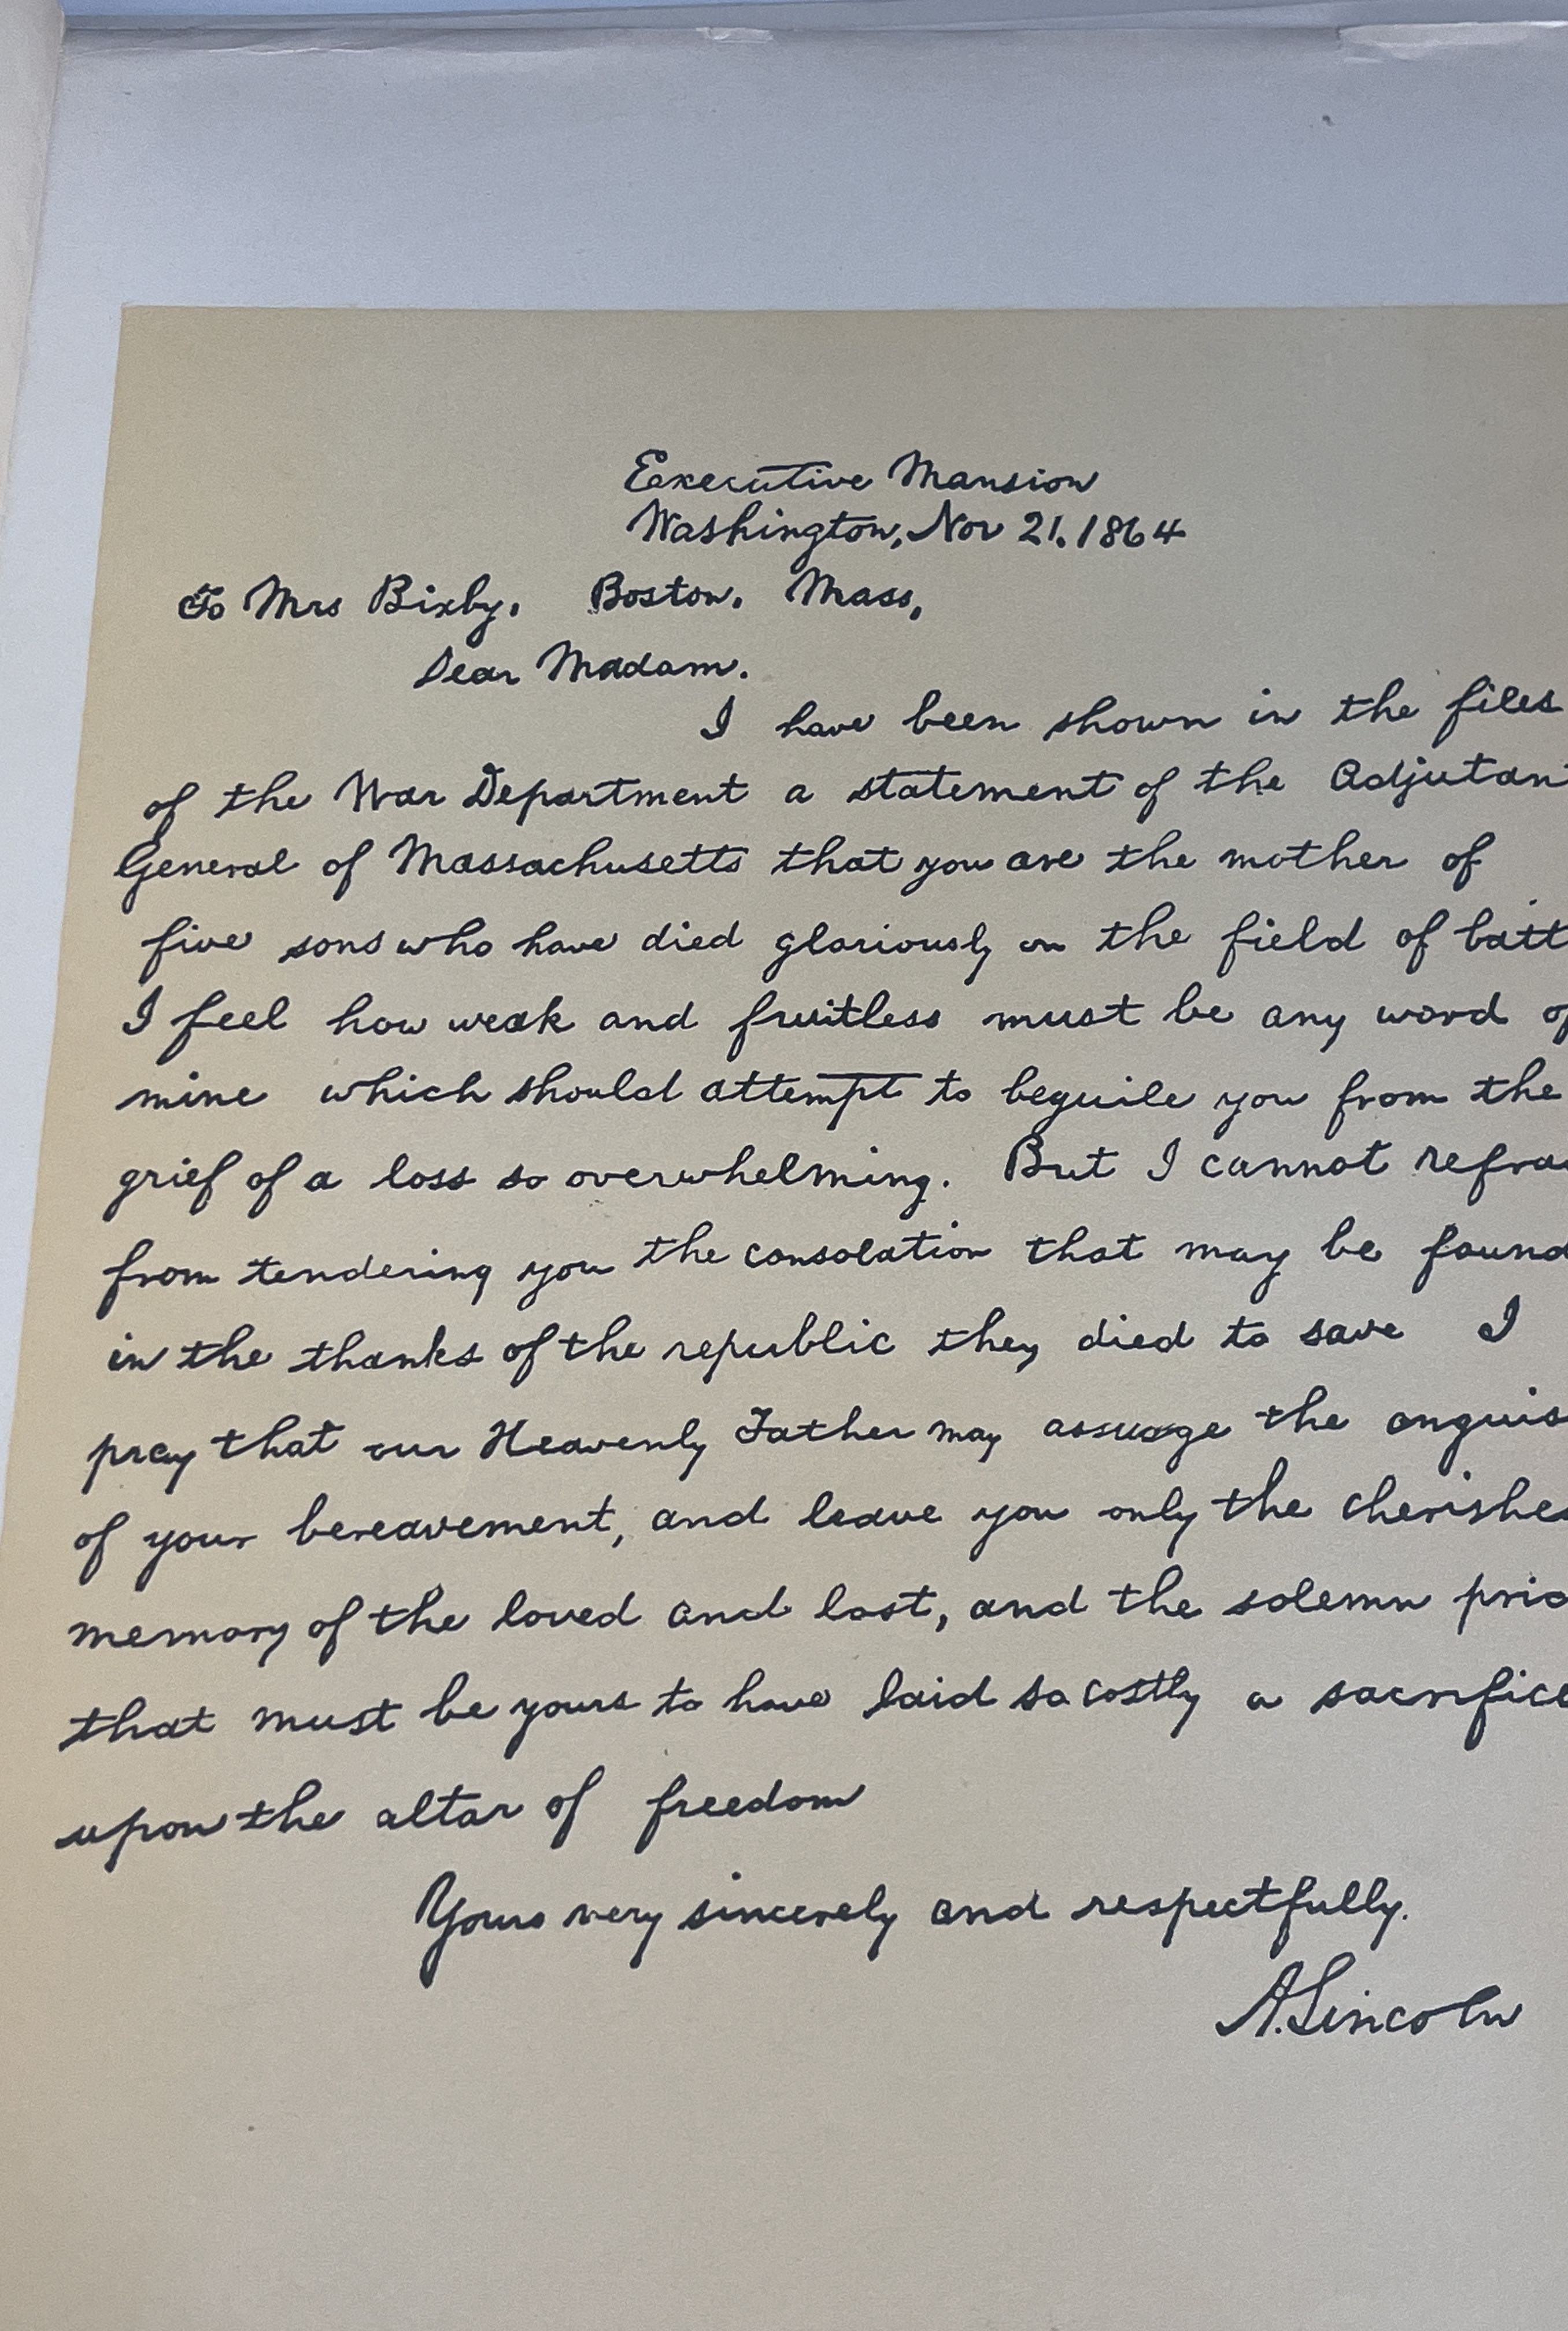 Executive Mansion
Washington, Nov 21. 1864
To Mrs Bixby. Boston. Mass,
Dear Madam.
I have been shown in the files
of the War Department a statement of the Adjutan
General of Massachusetts that you are the mother of
five sons who have died gloriously on the field of batt
I feel how weak and fruitless must be any word of
mine which should attempt to beguile you from the
grief of a loss so overwhelming. But I cannot refra
from tendering you the consolation that may be found
in the thanks of the republic they died to save I
pray that our Heavenly Father may assuage the anguis
of your bereavement, and leave you only the cherishe
memory of the loved and lost, and the solemn prid
that must be yours to have laid so costly a sacrifice
upon the altar of freedom
Yours very sincerely and respectfully.
A. Lincoln